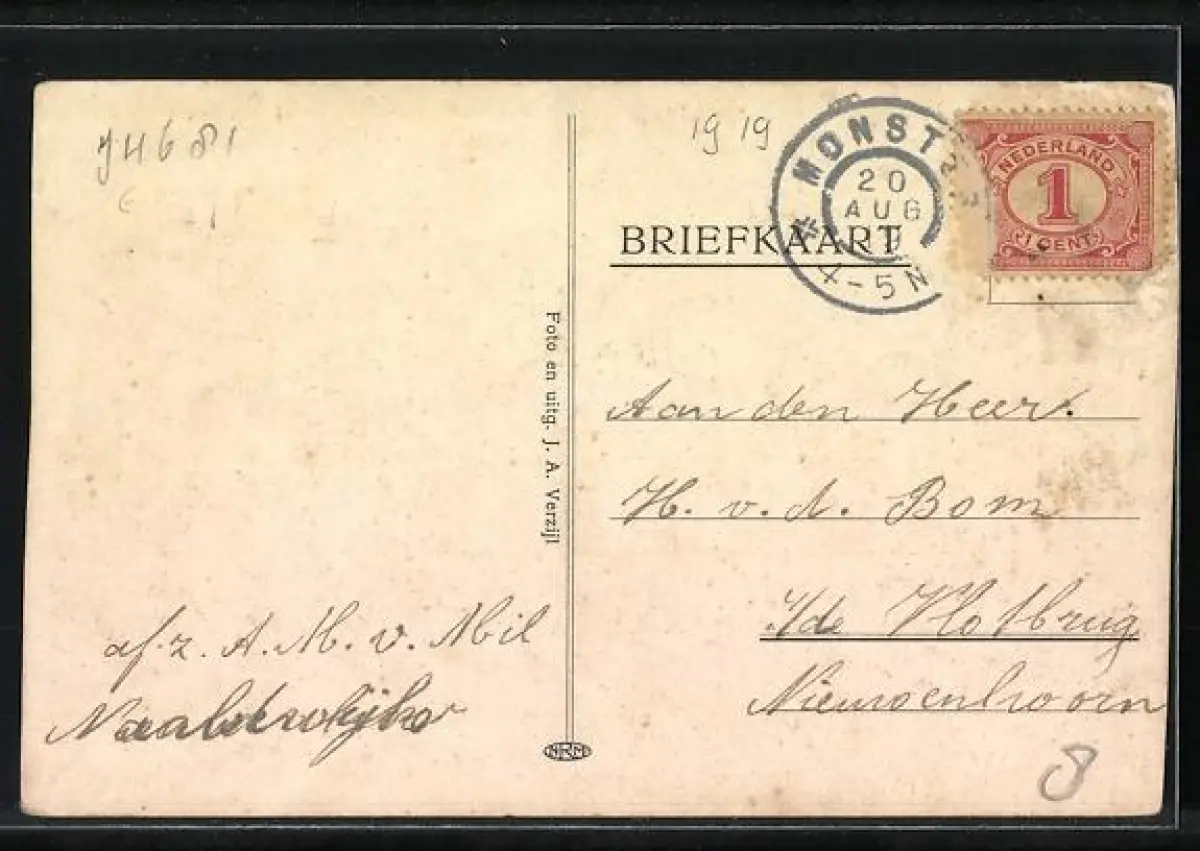 J4681
19 19
MONST
20
AUG
4-5N
NEDERLAND
1
1 CENT
BRIEFKAART
Foto en uitg. J. A. Verzijl
Aan den Heer
H. v. d. Bom
i/de Vlotbrug
Nieuwenhoorn
af.z. A. M. v. Mil
Naaldwijk
NRM
8